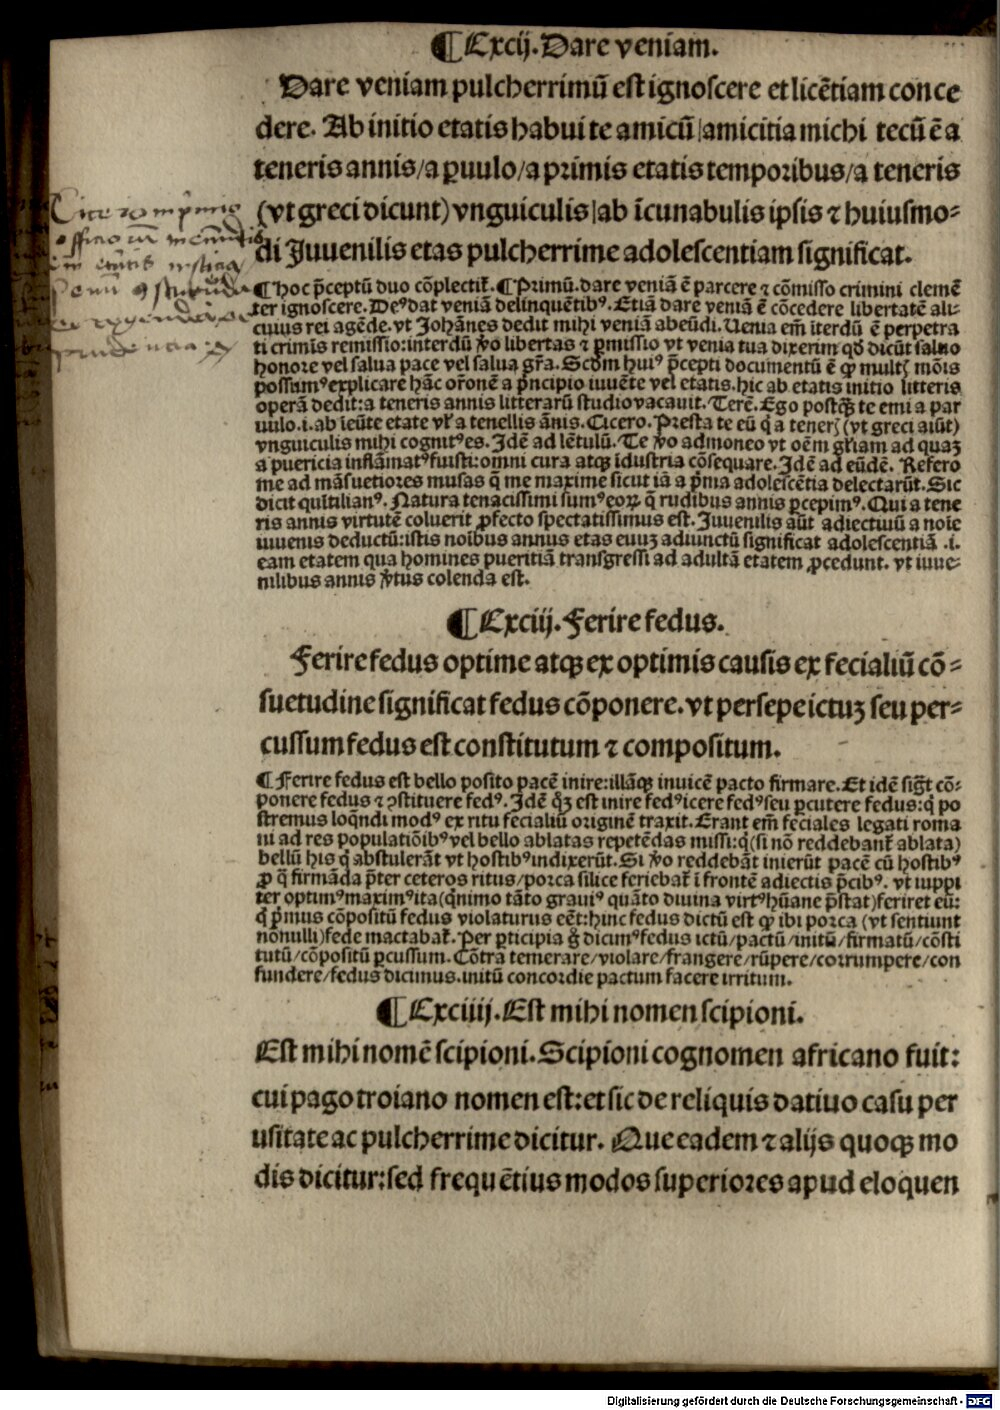 ¶Excij. Dare veniam.
Dare veniam pulcherrimū est ignoscere et licētiam conce
dere. Ab initio etatis habui te amicū|amicitia michi tecū ē a
teneris annis/a ꝑuulo/a primis etatis temporibus/a teneris
(vt greci dicunt) vnguiculis|ab īcunabulis ipsis ⁊ huiusmo⸗
di Juuenilis etas pulcherrime adolescentiam significat.
¶Hoc p̄ceptū duo cōplectit᷑. ¶Primū. dare veniā ē parcere ⁊ cōmisso crimini clemē
ter ignoscere. Deꝰ dat veniā delinquētibꝰ. Etiā dare veniā ē cōcedere libertatē ali⸗
cuius rei agēde. vt Johānes dedit mihi veniā abeūdi. Uenia em̄ iterdū ē perpetra
ti crimīs remissio: interdū v̄o libertas ⁊ ꝑmissio vt venia tua dixerim qd̄ dicūt saluo
honore vel salua pace vel salua gr̄a. Scd̄m huiꝰ p̄cepti documentū ē ꝙ multꝭ mōis
possumꝰ explicare hāc or̄onē a p̄ncipio iuuēte vel etatis. hic ab etatis initio litteris
operā dedit: a teneris annis litterarū studio vacauit. Terē. Ego postꝙ̄ te emi a par
uulo .i. ab ieūte etate vl̄ a tenellis ānis. Cicero. Presta te eū q̇ a tenerꝭ (vt greci aiūt)
vnguiculis mihi cognitꝰ es. Idē ad lētulū. Te v̄o admoneo vt oēm gl̄iam ad quaꝫ
a puericia inflāmatꝰ fuisti: omni cura atqꝫ īdustria cōsequare. Idē ad eūdē. Refero
me ad māsuetiores musas q̄ me maxime sicut iā a p̄ma adolescētia delectarūt. Sic
dicit quītilianꝰ. Natura tenacissimi sumꝰ eoꝝ q̄ rudibus annis ꝑcepimꝰ. Qui a tene
ris annis virtutē coluerit ꝓfecto spectatissimus est. Juuenilis aūt adiectiuū a noīe
iuuenis deductū: istis noībus annus etas euuꝫ adiunctū significat adolescentiā .i.
eam etatem qua homines pueritiā transgressi ad adultā etatem ꝓcedunt. vt iuue⸗
nilibus annis v̄tus colenda est.
¶Exciij. Ferire fedus.
Ferire fedus optime atqꝫ ex optimis causis ex fecialiū cō⸗
suetudine significat fedus cōponere. vt persepe ictuꝫ seu per⸗
cussum fedus est constitutum ⁊ compositum.
¶Ferire fedus est bello posito pacē inire: illāqꝫ inuicē pacto firmare. Et idē sigt̄ cō⸗
ponere fedus ⁊ ꝯstituere fedꝰ. Idē qꝫ est inire fedꝰ icere fedꝰ seu ꝑcutere fedus: q̇ po
stremus loq̄ndi modꝰ ex ritu fecialiū originē traxit. Erant em̄ feciales legati roma
ni ad res populatiōibꝰ vel bello ablatas repetēdas missi: q̇ (si nō reddebant᷑ ablata)
bellū his q̇ abstulerāt vt hostibꝰ indixerūt. Si v̄o reddebāt inierūt pacē cū hostibꝰ
ꝓ q̄ firmāda p̄ter ceteros ritus/porca silice feriebat᷑ ī frontē adiectis p̄cibꝰ. vt iuppi
ter optimꝰ maximꝰ ita (q̄nimo tāto grauiꝰ quāto diuina virtꝰ hūane p̄stat) feriret eū:
q̇ p̄mus cōpositū fedus violaturus eēt: hinc fedus dictū est ꝙ ibi porca (vt sentiunt
nōnulli) fede mactabat᷑. Per ꝑticipia g̊ dicimꝰ fedus ictū/pactū/initū/firmatū/cōsti
tutū/cōpositū ꝑcussum. Cōtra temerare/violare/frangere/rūpere/corrumpere/con
fundere/fedus dicimus. initū concordie pactum facere irritum.
¶Exciiij. Est mihi nomen scipioni.
Est mihi nomē scipioni. Scipioni cognomen africano fuit:
cui pago troiano nomen est: et sic de reliquis datiuo casu per
usitate ac pulcherrime dicitur. Que eadem ⁊ alijs quoqꝫ mo
dis dicitur: sed frequētius modos superiores apud eloquen
Digitalisierung gefördert durch die Deutsche Forschungsgemeinschaft - DFG